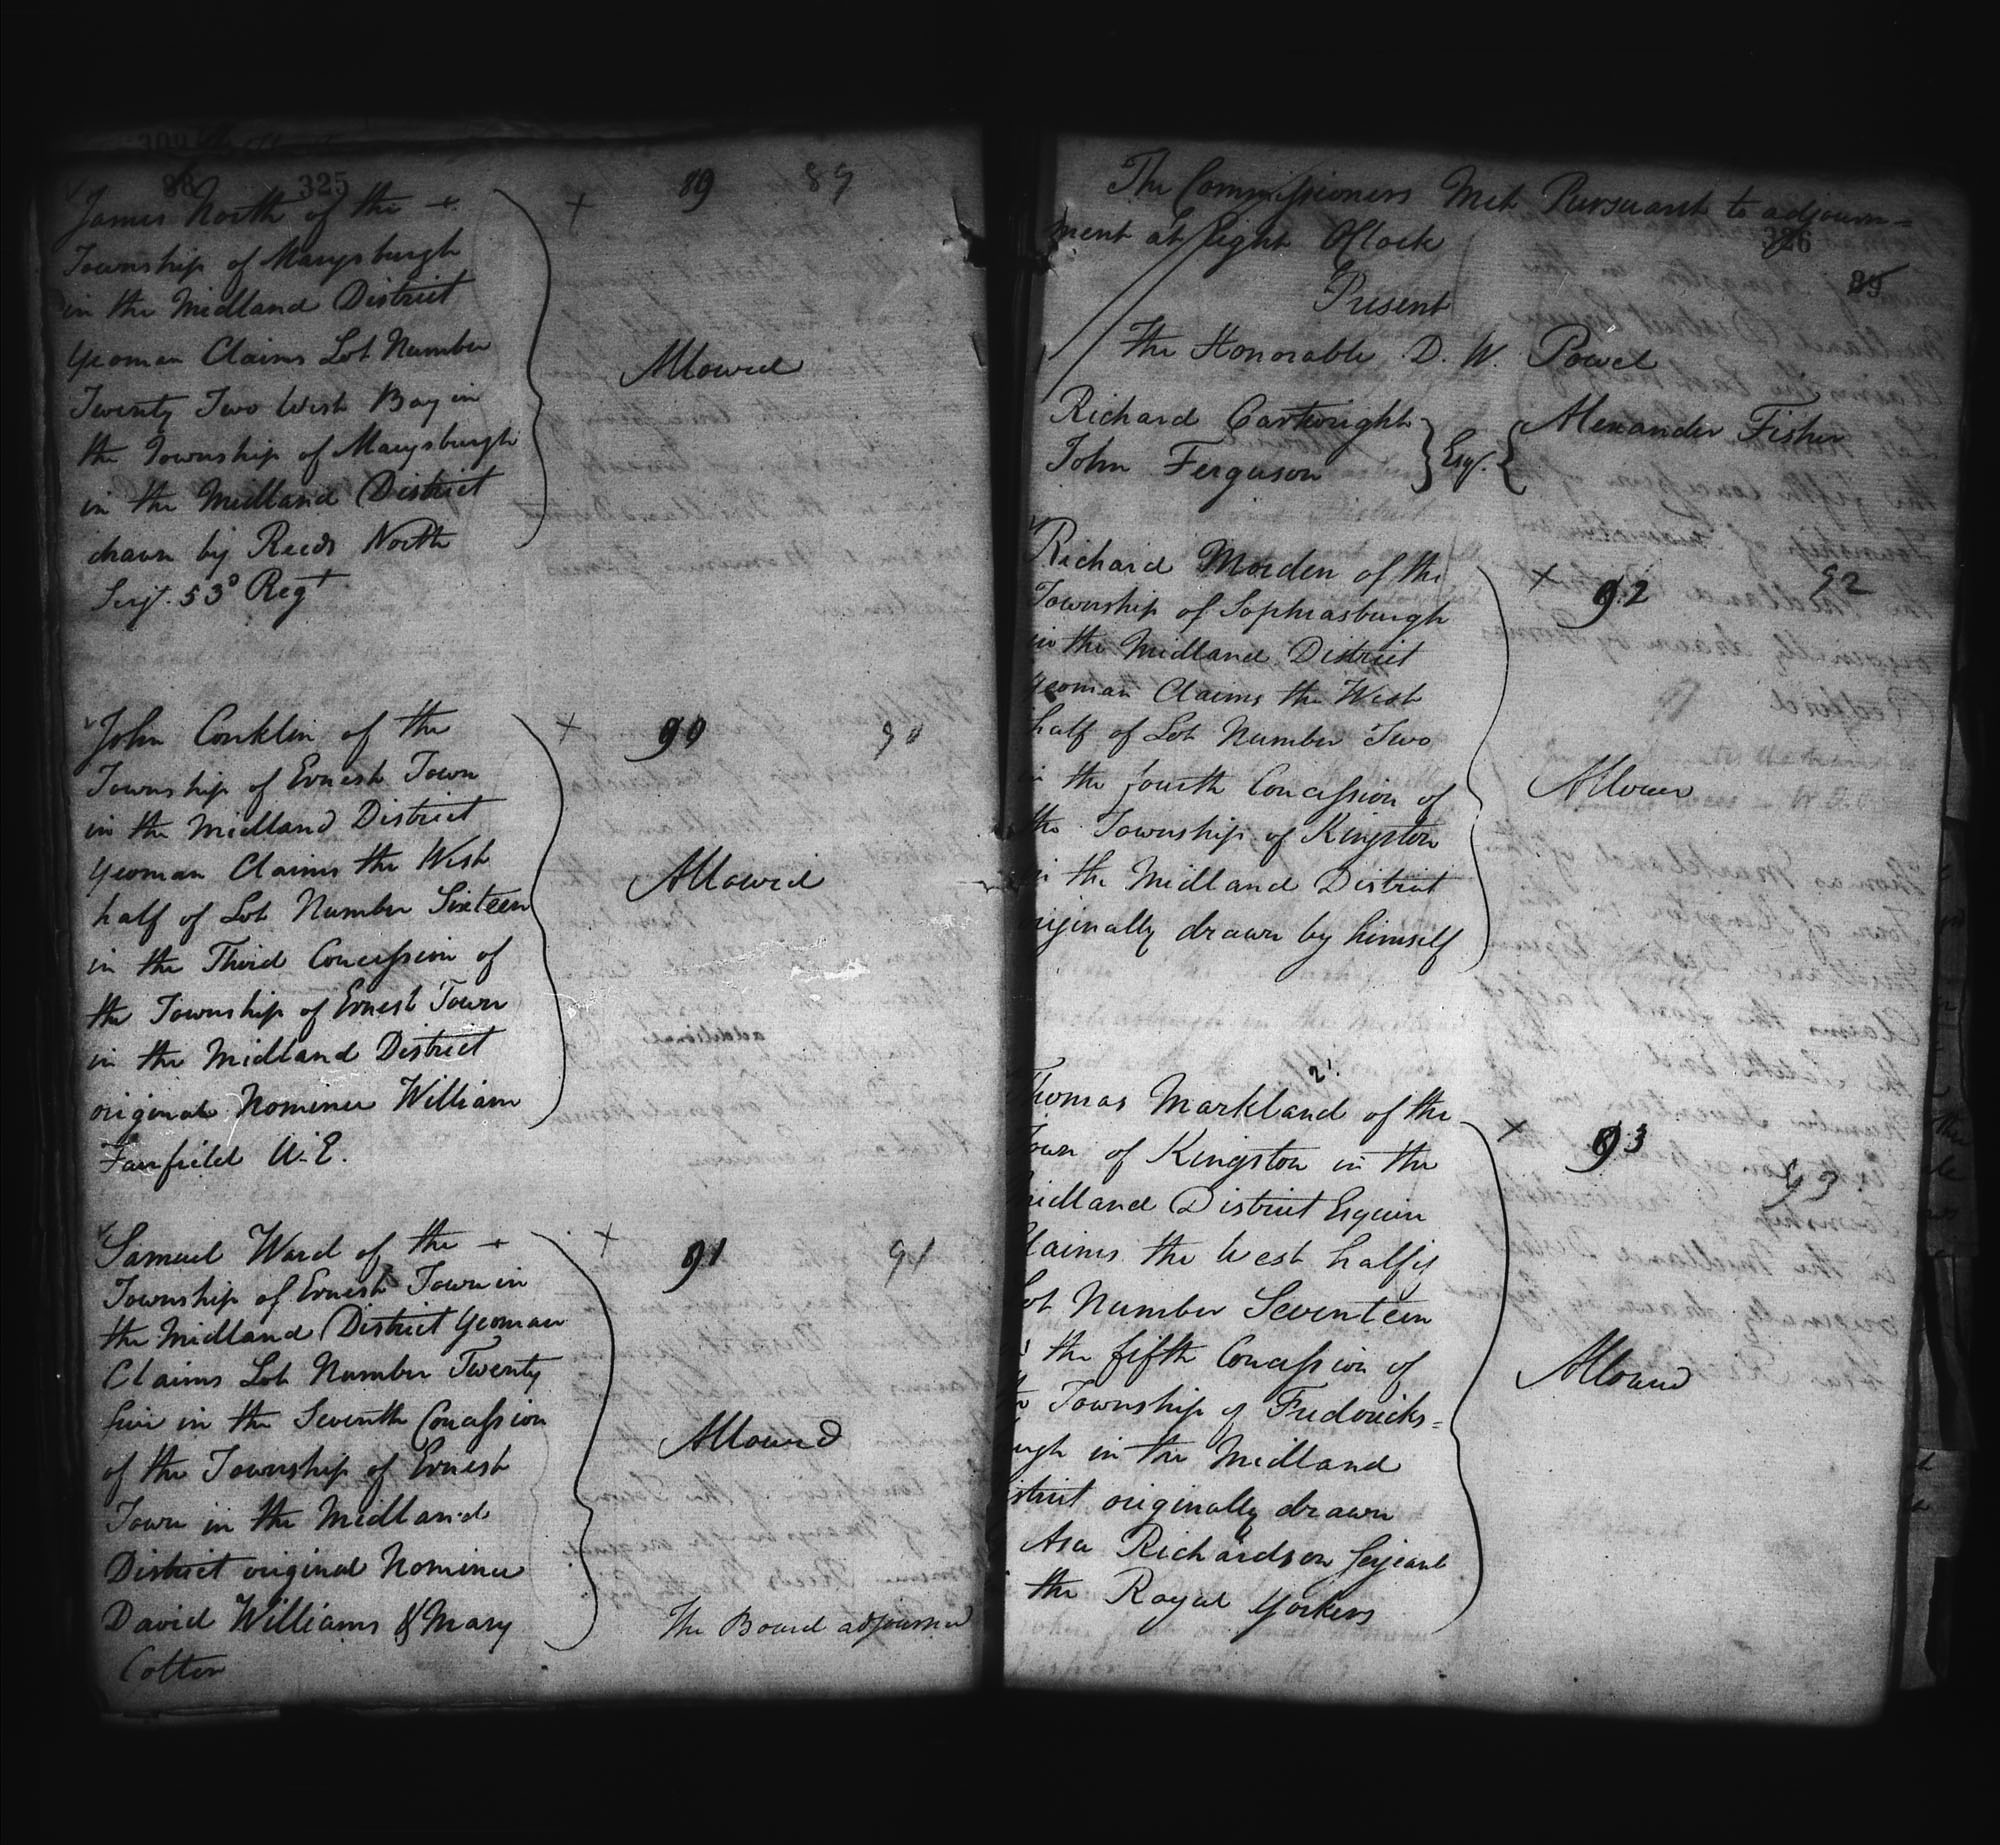 88 325
James North of the +
Township of Marysburgh
in the Midland District
yeoman Claims Lot Number
Twenty Two West Bay in
the Township of Marysburgh
in the Midland District
drawn by Reeds North
Serjt. 53d Regt
+ 89 89
Allowed
John Conklin of the
Township of Ernest Town
in the Midland District
yeoman Claims the West
half of Lot Number Sixteen
in the Third Concession of
the Township of Ernest Town
in the Midland District
original Nominee William
Fairfield U.E.
+ 90 90
Allowed
Samuel Ward of the +
Township of Ernest Town in
the Midland District yeoman
Claims Lot Number Twenty
five in the Seventh Concession
of the Township of Ernest
Town in the Midland
District original Nominee
David Williams & Mary
Cotter
+ 91 91
Allowed
The Board adjourned
The Commissioners Met Pursuant to adjourn=
ment at Eight OClock
326
89
Present
The Honorable D. W. Powel
Richard Cartwright
John Ferguson
Esqr.
Alexander Fisher
Richard Morden of the
Township of Sophiasburgh
in the Midland District
yeoman Claims the West
half of Lot Number Two
in the fourth Concession of
the Township of Kingston
in the Midland District
originally drawn by himself
+ 92 92
Allowed
21
Thomas Markland of the
Town of Kingston in the
Midland District Esquire
Claims the West half of
Lot Number Seventeen
the fifth Concession of
Township of Fredericks=
urgh in the Midland
strict originally drawn
Asa Richardson Serjeant
the Royal Yorkers
+ 93 93
Allowed